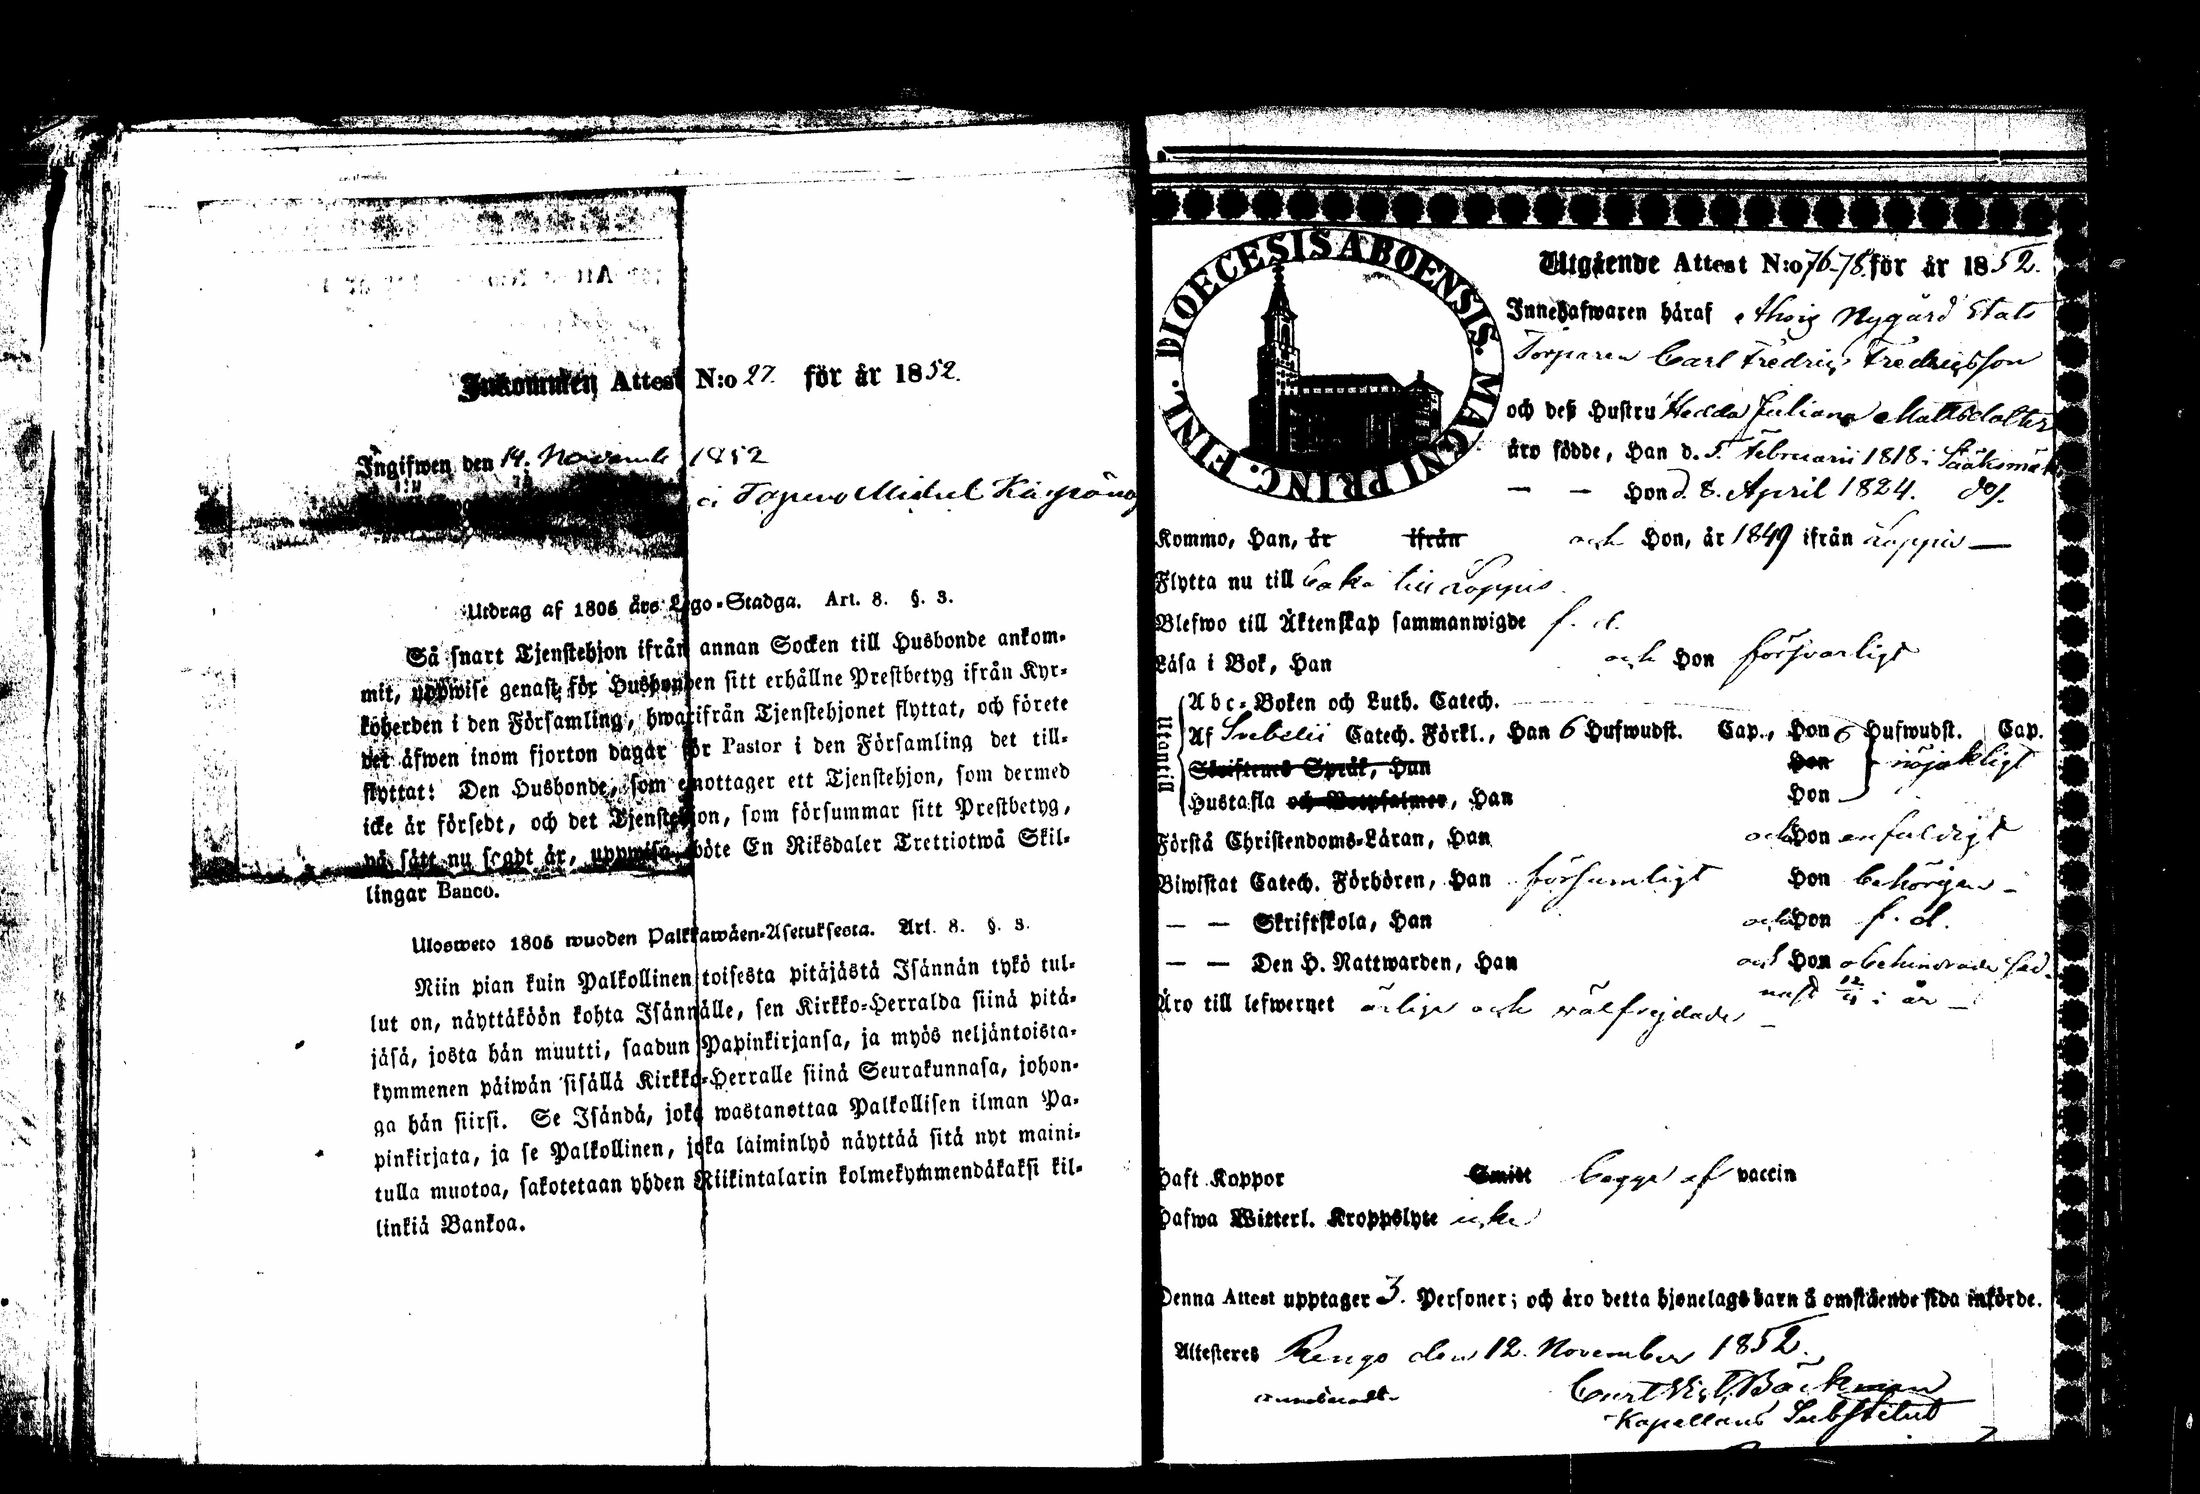 Inkommen Attest N:o 27. för år 1852.
Ingifwen den 14. Novemb 1852
Michel
Utdrag af 1805 års Lego-Stadga. Art. 8. §. 3.
Så snart Tjenstehjon ifrån annan Socken till Husbonde ankom-
mit, uppwise genast för Husbonden sitt erhållne Prestbetyg ifrån Kyr-
koherden i den Församling, hwarifrån Tjenstehjonet flyttat, och förete
det äfwen inom fjorton dagar för Pastor i den Församling det till-
flyttat: Den Husbonde, som emottager ett Tjenstehjon, som dermed
icke är försedt, och det Tjenstehjon, som försummar sitt Prestbetyg,
på sätt nu sagdt är, uppwisa, böte En Riksdaler Trettiotwå Skil-
lingar Banco.
Ulosweto 1805 wuoden Palkkawäen-Asetuksesta. Art. 8. §. 3.
Niin pian kuin Palkollinen toisesta pitäjästä Isännän tykö tul-
lut on, näyttäköön kohta Isännälle, sen Kirkko-Herralda siinä pitä-
jäsä, josta hän muutti, saadun Papinkirjansa, ja myös neljäntoista-
kymmenen päiwän sisällä Kirkko-Herralle siinä Seurakunnasa, johon-
ga hän siirsi. Se Isändä, joka wastanottaa Palkollisen ilman Pa-
pinkirjata, ja se Palkollinen, joka laiminlyö näyttää sitä nyt maini-
tulla muotoa, sakotetaan yhden Riikintalarin kolmekymmendäkaksi kil-
linkiä Bankoa.
DIOECESIS ABOENSIS. MAGNI PRINC. FINL.
Utgående Attest N:o 76-78. för år 1852.
Innehafwaren häraf Ahois Nygård Stats
Torparen Carl Fredric Fredricsson
och dess Hustru Hedda Juliana Mattsdotter
äro födde, Han d. 5. Februarii 1818 i Sääksmäki
— — Hon d. 8. April 1824. do.
Kommo, Han, år ifrån och Hon, år 1849 ifrån Loppis —
Flytta nu till baka till Loppis.
Blefwo till Äktenskap sammanwigde f. d.
Läsa i Bok, Han och Hon försvarligt
Utantill
Abc-Boken och Luth. Catech.
Af Svebelii Catech. Förkl., Han 6 Hufwudst. Cap., Hon 6 Hufwudst. Cap.
Skriftenes Språk, Han Hon nöjaktligt
Hustafla och Botpsalmer, Han Hon
Förstå Christendoms-Läran, Han och Hon enfaldigt
Biwistat Catech. Förhören, Han försumligt Hon behörigen —
— — Skriftskola, Han och Hon f. d.
— — Den H. Nattwarden, Han och Hon obehindrade sed-
nast i år —
Äro till lefwernet ärliga och välfrejdade —
Haft Koppor Smitt begge af vaccin
Hafwa Witterl. Kroppslyte icke
Denna Attest upptager 3. Personer; och äro detta hjonelags barn å omstående sida införde.
Attesteres Rengo den 12. November 1852.
Bäckman
Kapellans Substitut